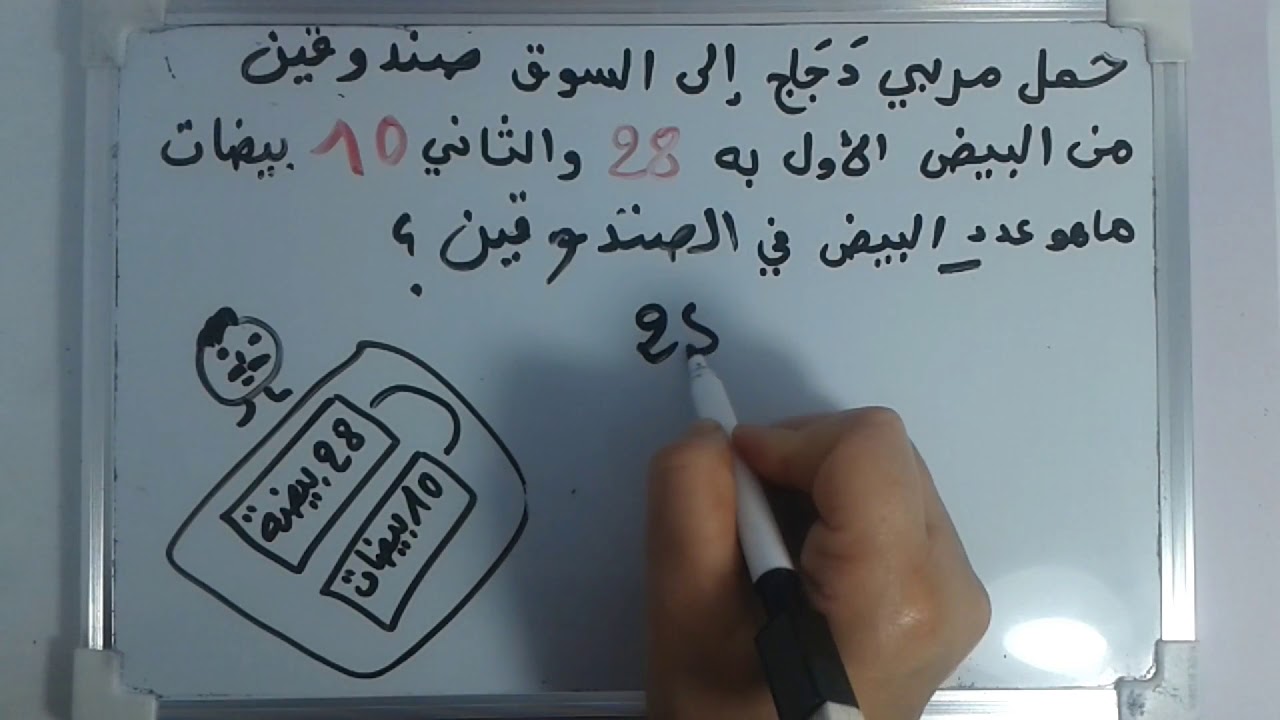 حمل مربي دَجَاج إلى السوق صندوقين
من البيض الأول به 28 والثاني 10 بيضات
ما هو عدد البيض في الصندوقين ؟
28 بيضة
10 بيضات